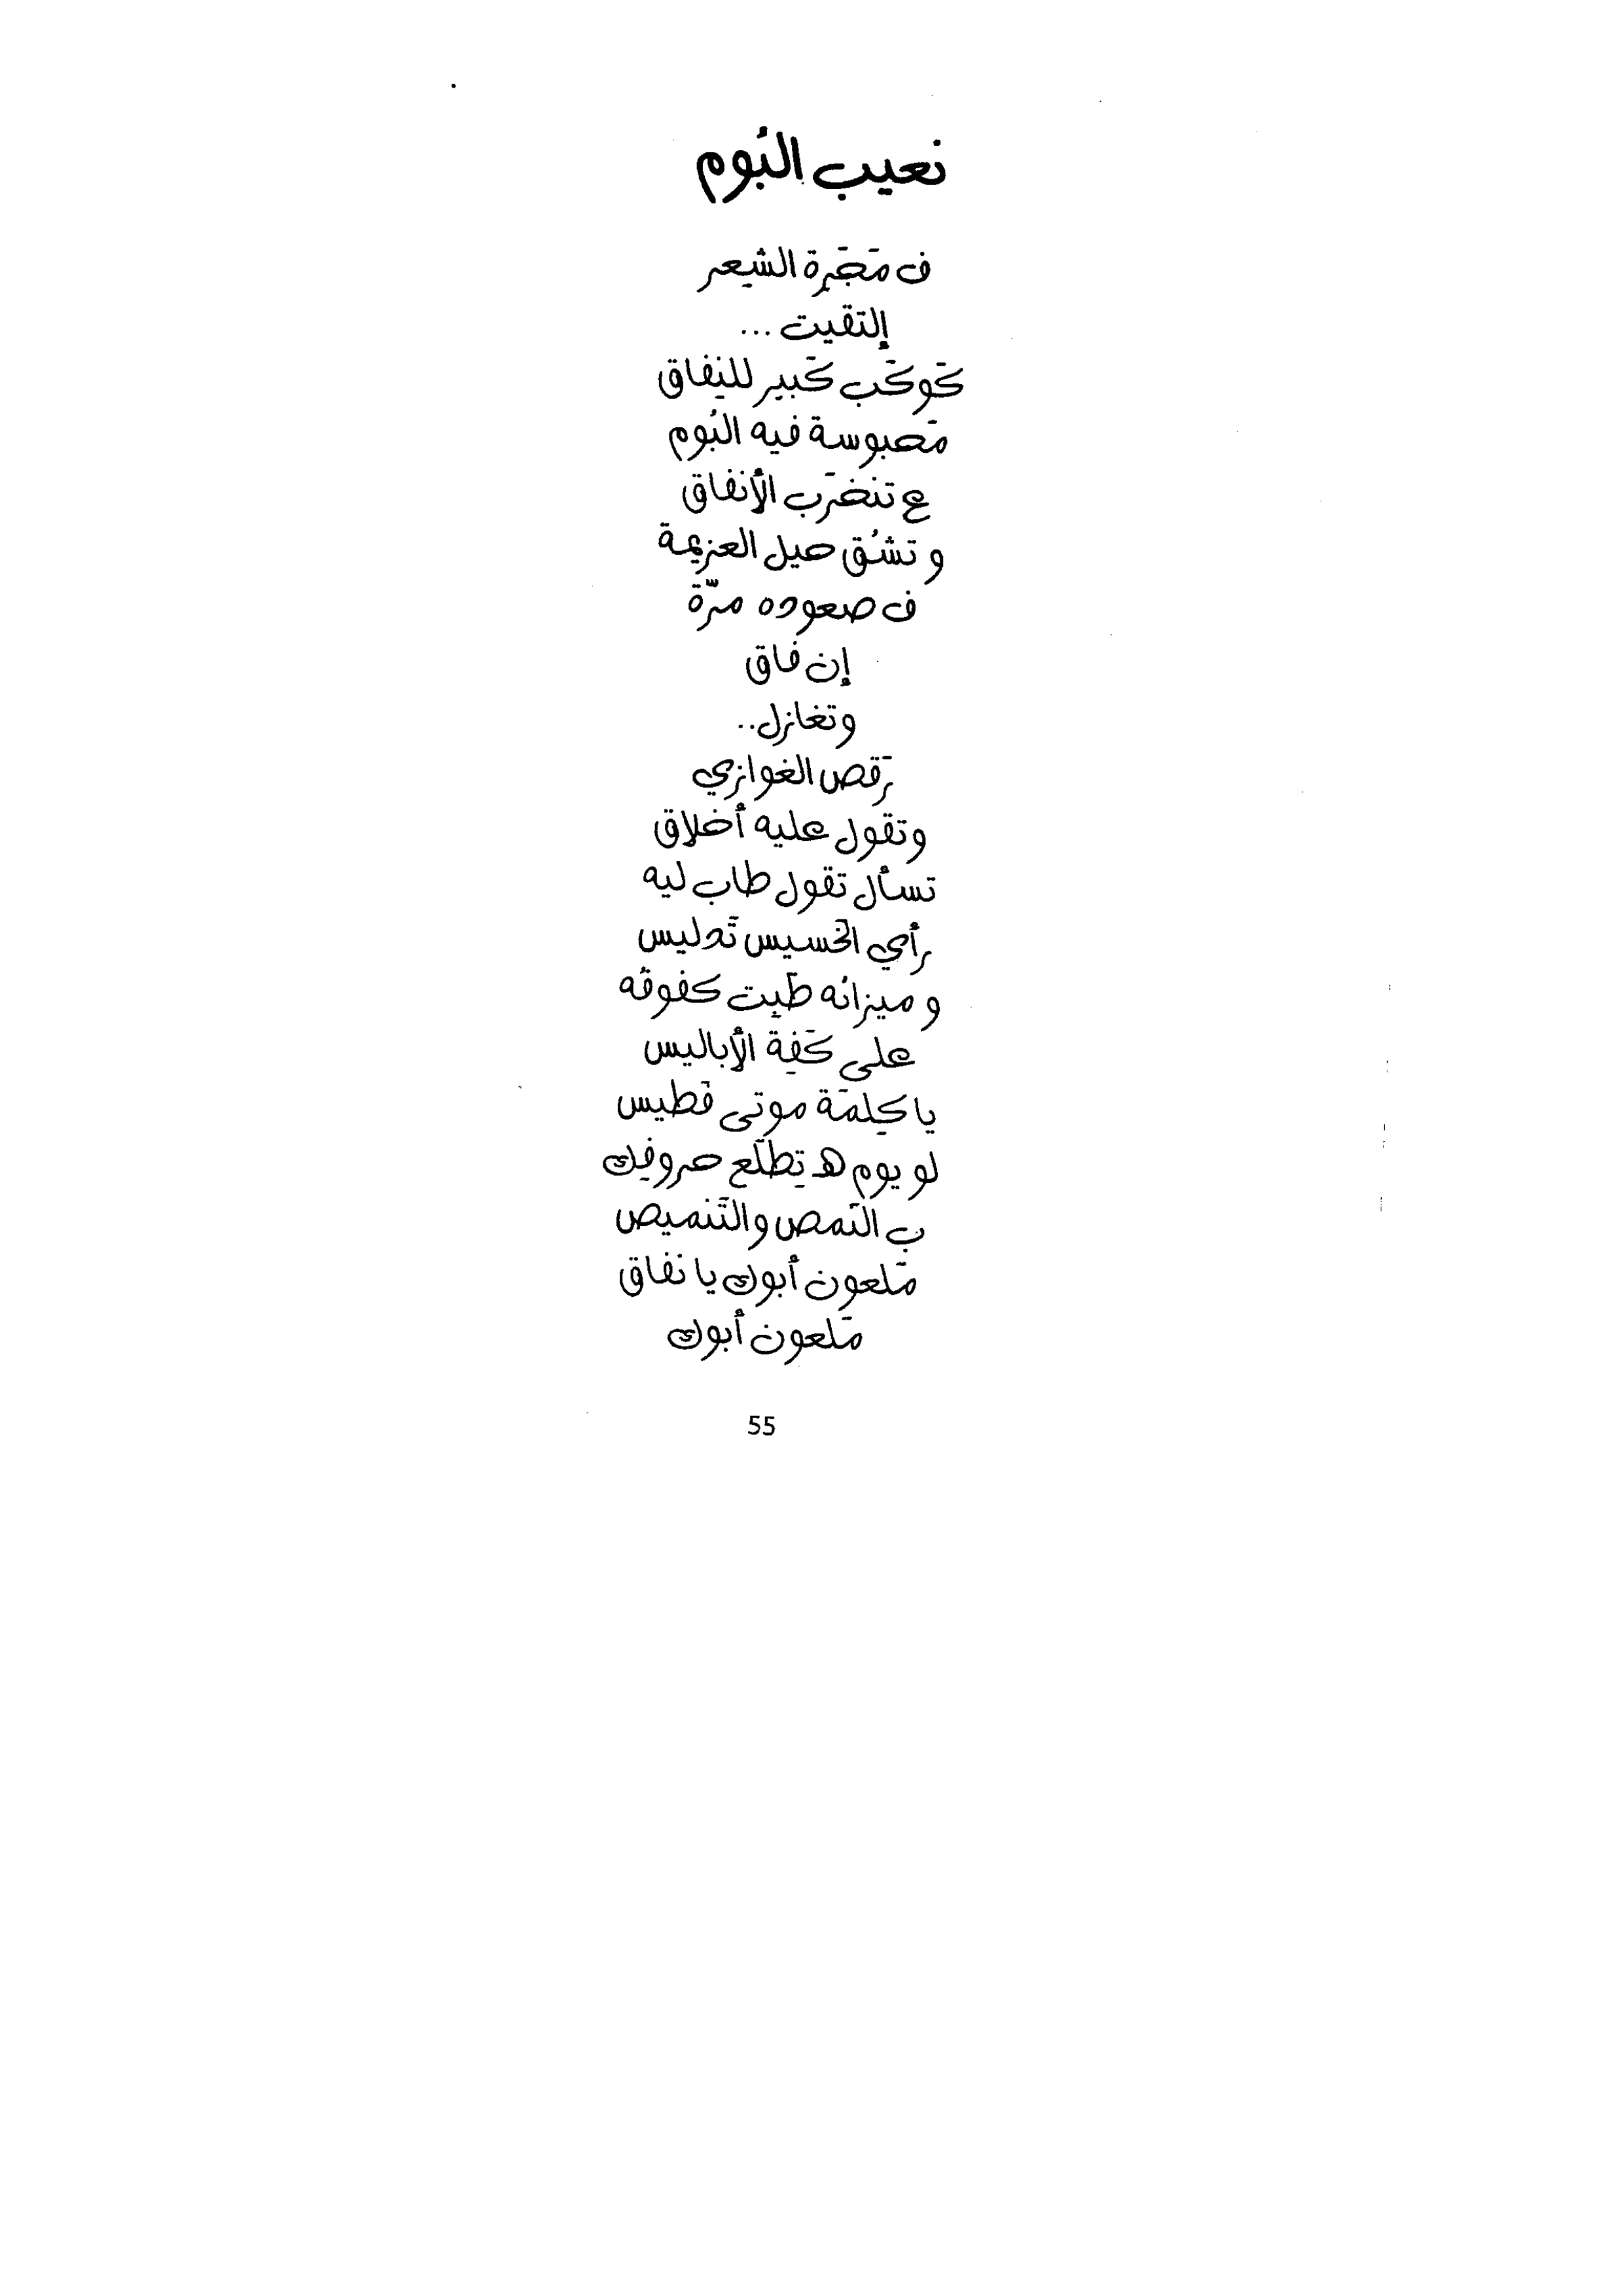 نعيب البُوم
ف مَجَرِة الشِعر
إلتقيت ...
كَوكَب كَبير للنِفاق
مَحبوسة فيه البُوم
ع تنخرَب الأنفاق
و تشُق حيل العزيمة
ف صعوده مرّة
إن فاق
وتغازل..
رَقص الغوازي
وتقول عليه أخلاق
تسأل تقول طاب ليه
رأي الخسيس تَدليس
و ميزانُه طَبِت كفوفُه
على كَفِة الأباليس
يا كِلمَة موتى فَطيس
لو يوم هـ تِطلَع حروفِك
بِ النَمص والتَنميص
مَلعون أبوك يا نفاق
مَلعون أبوك
55